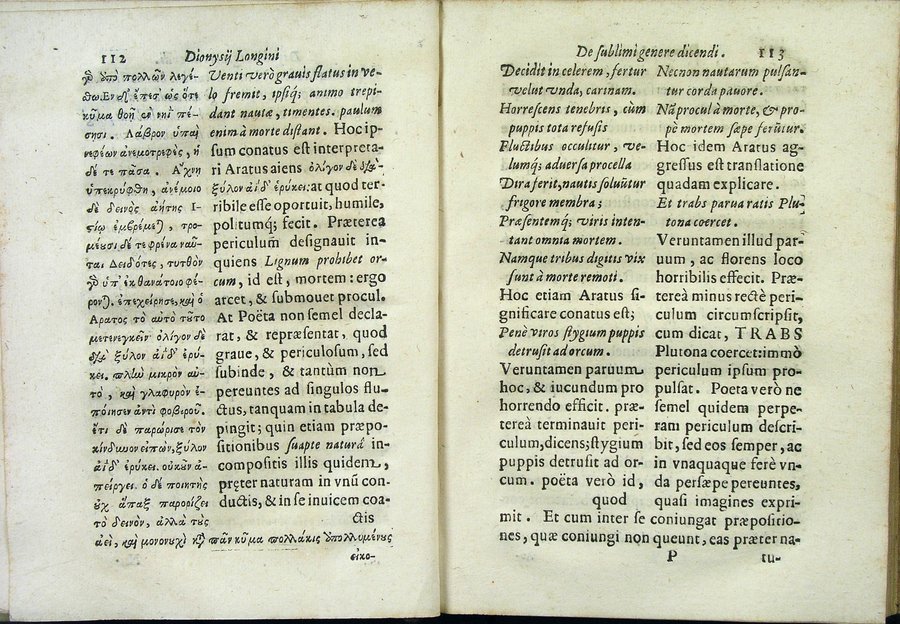 112 Dionysij Longini
ὑπὸ πολλῶν λεγέ-
θω. Ἐν δ' ἔπεσ' ὡς ὅτε
κῦμα θοῇ ἐν νηῒ πέ-
σησι. Λάβρον ὑπαὶ
νεφέων ἀνεμοτρεφὲς, ἡ
δέ τε πᾶσα. Ἄχνῃ
ὑπεκρύφθη, ἀνέμοιο
δὲ δεινὸς ἀήτης Ἱ-
στίῳ ἐμβρέμε), τρο-
μέουσι δέ τε φρένα ναῦ-
ται Δειδότες, τυτθὸν
ὑπ' ἐκ θανάτοιο φέ-
ρον). ἐπεχείρησε, καὶ ὁ
Ἄρατος τὸ αὐτὸ τοῦτο
μετενεγκεῖν ὀλίγον δὲ
διὰ ξύλον ἄϊδ' ἐρύ-
κει. πλὴν μικρὸν αὐ-
τὸ, καὶ γλαφυρὸν ἐ-
ποίησεν ἀντὶ φοβεροῦ.
ἔτι δὲ παρώρισε τὸν
κίνδυνον εἰπών, ξύλον
ἄϊδ' ἐρύκει. οὐκοῦν ἀ-
πείργει. ὁ δὲ ποιητὴς
οὐχ ἅπαξ παρορίζει
τὸ δεινὸν, ἀλλὰ τοὺς
ἀεὶ, καὶ μονονουχὶ κατὰ πᾶν κῦμα πολλάκις ἀπολλυμένους
εἰκο-
Venti verò grauis flatus in ve-
lo fremit, ipsiq; animo trepi-
dant nautæ, timentes. paulum
enim à morte distant. Hoc ip-
sum conatus est interpreta-
ri Aratus aiens ὀλίγον δὲ διὰ
ξύλον ἄϊδ' ἐρύκει: at quod ter-
ribile esse oportuit, humile,
politumq; fecit. Præterea
periculum designauit in-
quiens Lignum prohibet or-
cum, id est, mortem: ergo
arcet, & submouet procul.
At Poëta non semel decla-
rat, & repræsentat, quod
graue, & periculosum, sed
subinde, & tantùm non
pereuntes ad singulos flu-
ctus, tanquam in tabula de-
pingit; quin etiam præpo-
sitionibus suapte naturâ in-
compositis illis quidem,
præter naturam in vnũ con-
ductis, & in se inuicem coa-
ctis
De sublimi genere dicendi. 113
Decidit in celerem, fertur
velut vnda, carinam.
Horrescens tenebris, cùm
puppis tota refusis
Fluctibus occulitur, ve-
lumq; aduersa procella
Dira ferit, nautis soluũtur
frigore membra;
Præsentemq; viris inten-
tant omnia mortem.
Namque tribus digitis vix
sunt à morte remoti.
Hoc etiam Aratus si-
gnificare conatus est;
Penè viros stygium puppis
detrusit ad orcum.
Veruntamen paruum
hoc, & iucundum pro
horrendo efficit. præ-
tereà terminauit peri-
culum, dicens; stygium
puppis detrusit ad or-
cum. poëta verò id,
quod
Necnon nautarum pulsan-
tur corda pauore.
Nã procul à morte, & pro-
pè mortem sæpe ferũtur.
Hoc idem Aratus ag-
gressus est translatione
quadam explicare.
Et trabs parua ratis Plu-
tona coercet.
Veruntamen illud par-
uum, ac florens loco
horribilis effecit. Præ-
tereà minus rectè peri-
culum circumscripsit,
cum dicat, TRABS
Plutona coercet: immò
periculum ipsum pro-
pulsat. Poeta verò ne
semel quidem perpe-
ram periculum descri-
bit, sed eos semper, ac
in vnaquaque ferè vn-
da persæpe pereuntes,
quasi imagines expri-
mit. Et cum inter se coniungat præpositio-
nes, quæ coniungi non queunt, eas præter na-
P tu-